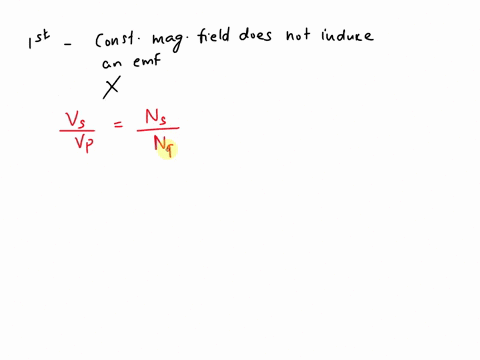 1st - Const. mag. field does not induce
an emf
X
Vs/Vp = Ns/Np